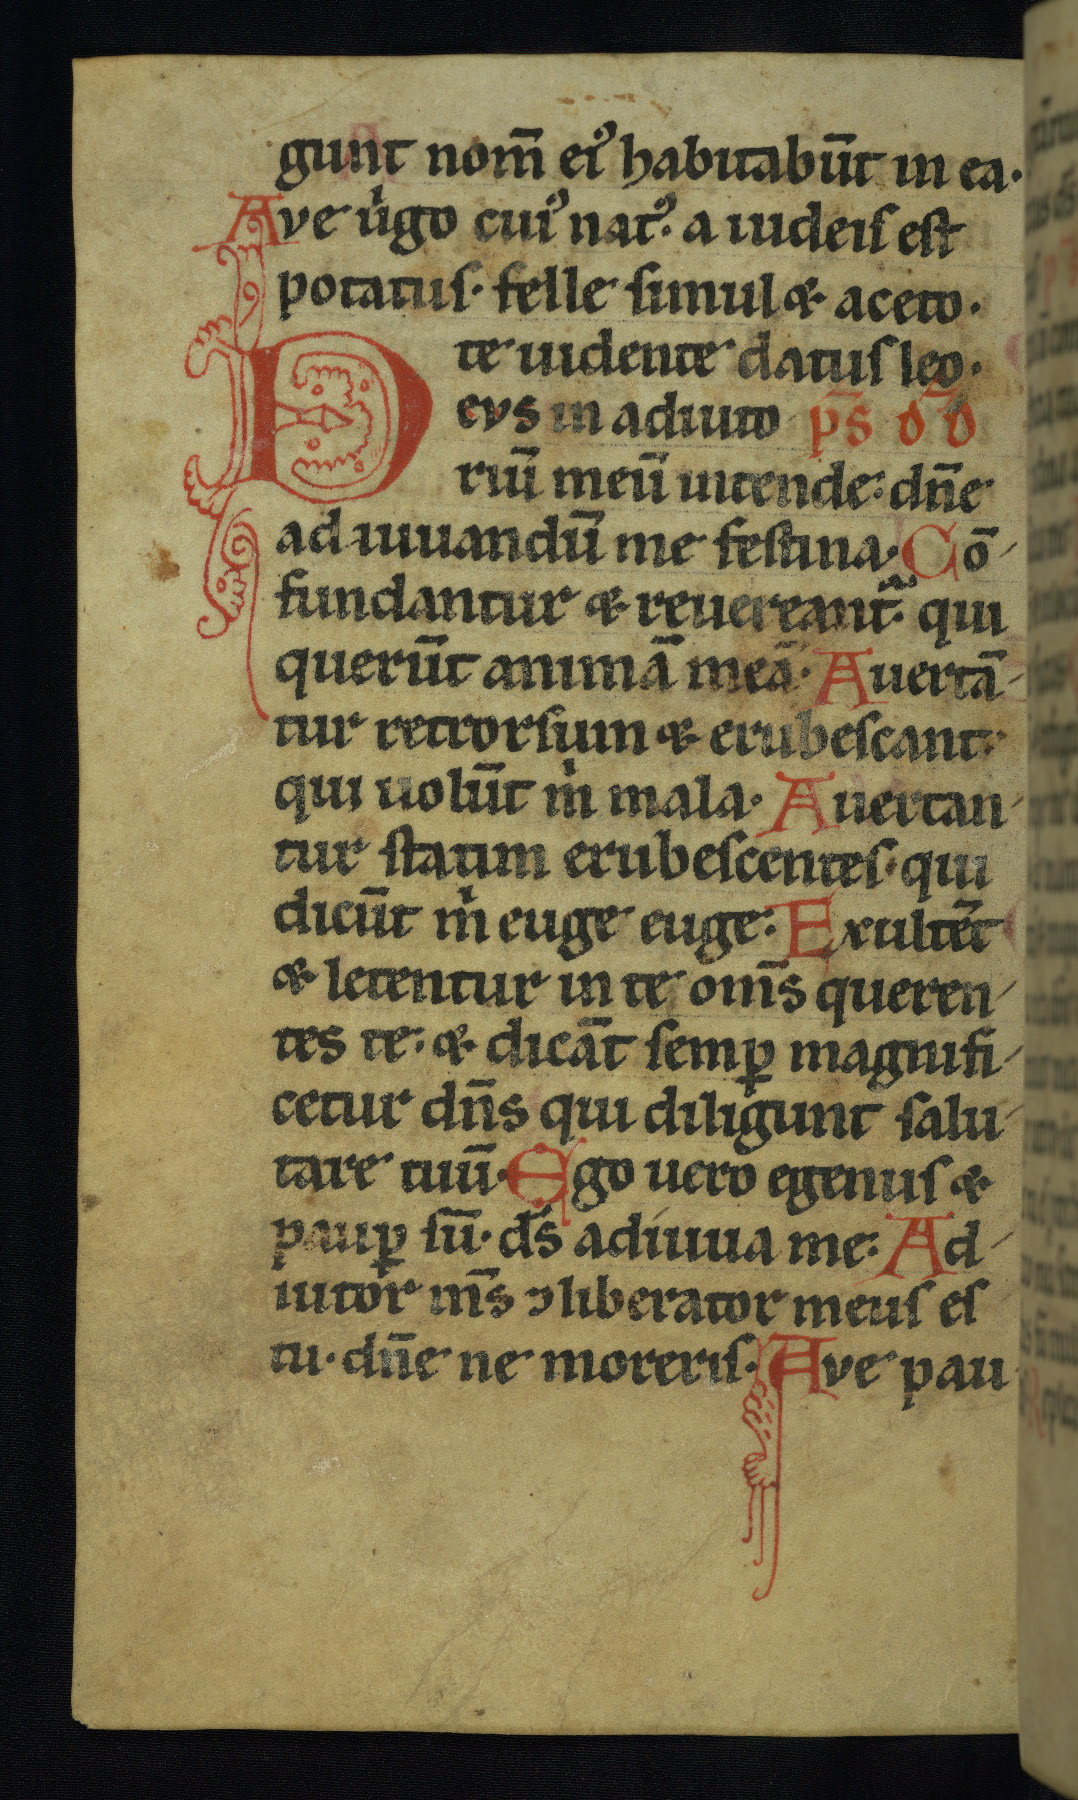 gunt nom̄ eiꝰ habitabūt in ea.
Ave uͥgo cuiꝰ natꝰ. a iudeis est
potatus. felle simul & aceto.
te uidente datus leo.
Deus in adiuto p̄s dd̄
riū meū intende: dn̄e
ad iuuandū me festina. Cō
fundantur & reuereant᷑. qui
querūt animā meā. Auertā
tur retrorsum & erubescant:
qui uolūt m̍ mala. Auertan
tur statim erubescentes. qui
dicūt m̍ euge euge: Exultēt
& letentur in te om̄s queren
tes te: & dicāt semꝑ magnifi
cetur dn̄s qui diligunt salu
tare tuū. Ego uero egenus &
pauꝑ sū. ds̄ adiuua me: Ad
iutor ms̄ ⁊ liberator meus es
tu. dn̄e ne moreris. Ave pau